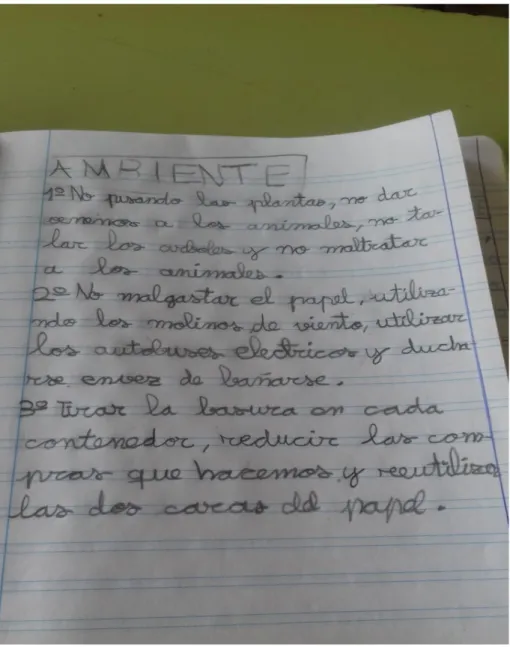 AMBIENTE
1º No pisando las plantas, no dar
a los animales, no ta-
lar los arboles y no maltratar
a los animales.
2º No malgastar el papel, utiliza-
ndo los molinos de viento, utilizar
los autobuses electricos y ducha-
rse envez de bañarse.
3º Tirar la basura en cada
contenedor, reducir las com-
pras que hacemos y reeutiliza
las dos caras del papel.